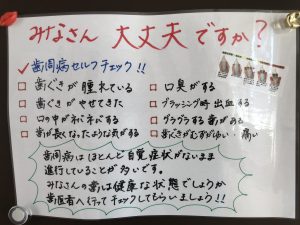 みなさん 大丈夫ですか?
✓歯周病セルフチェック!!
□ 歯ぐきが腫れている
□ 歯ぐきがやせてきた
□ 口の中がネバネバする
□ 歯が長くなったような気がする
□ 口臭がする
□ ブラッシング時出血する
□ グラグラする歯がある
□ 歯ぐきがむずがゆい・痛い
歯周病はほとんど自覚症状がないまま
進行していることが多いです。
みなさんの歯は健康な状態でしょうか
歯医者へ行ってチェックしてもらいましょう!!